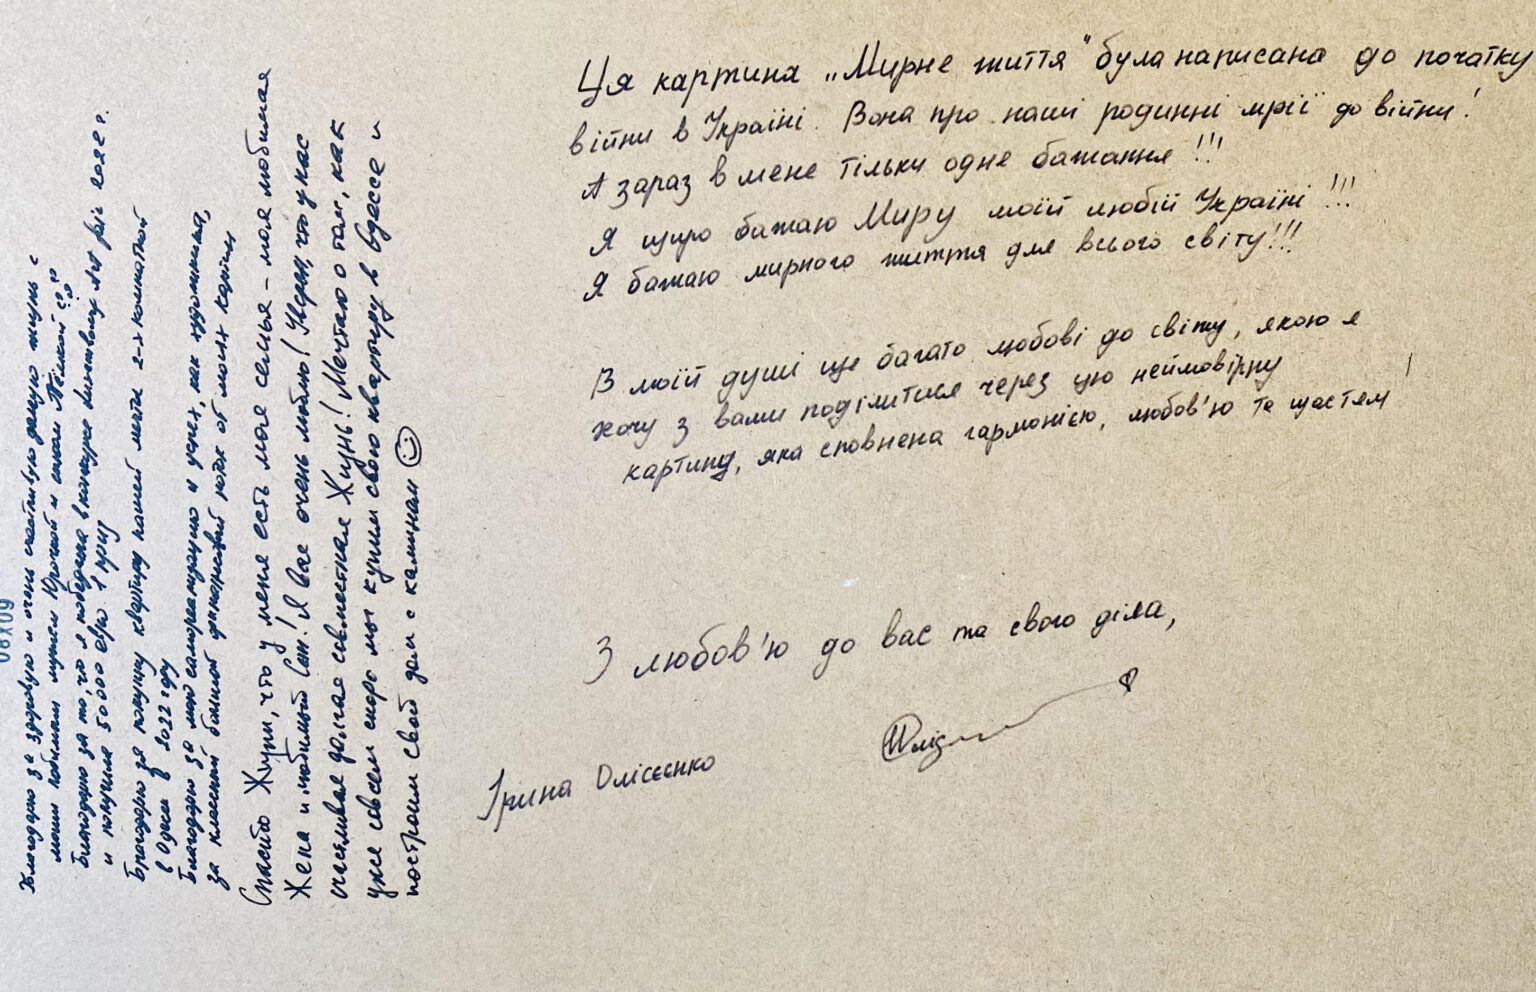 Ця картина „Мирне життя" була написана до початку
війни в Україні. Вона про наші родинні мрії до війни!
А зараз в мене тільки одне бажання!!!
Я щиро бажаю Миру моїй любій Україні!!!
Я бажаю мирного життя для всього світу!!!
В моїй душі ще багато любові до світу, якою я
хочу з вами поділитися через цю неймовірну
картину, яка сповнена гармонією, любов'ю та щастям
З любов'ю до вас та свого діла,
Ірина Олісєєнко
Благодарю за здоровую и очень счастливую долгую жизнь с
моим любимым мужем и сыном
Благодарю за то, что я победила в конкурсе 2022 г.
и получила 50000 евро 1 приз
Благодарю за покупку квартиры нашей мечты 2-х комнатной
в Одессе в 2022 году
Благодарю за мою самореализацию и успех, как художника,
за классный большой финансовый поток от моих картин
Спасибо Жизни, что у меня есть моя семья - моя любимая
Жена и любимый Сын! Я вас очень люблю! Уверен, что у нас
счастливая долгая совместная Жизнь! Мечтаю о том, как
уже совсем скоро мы купим свою квартиру в Одессе и
построим свой дом с камином